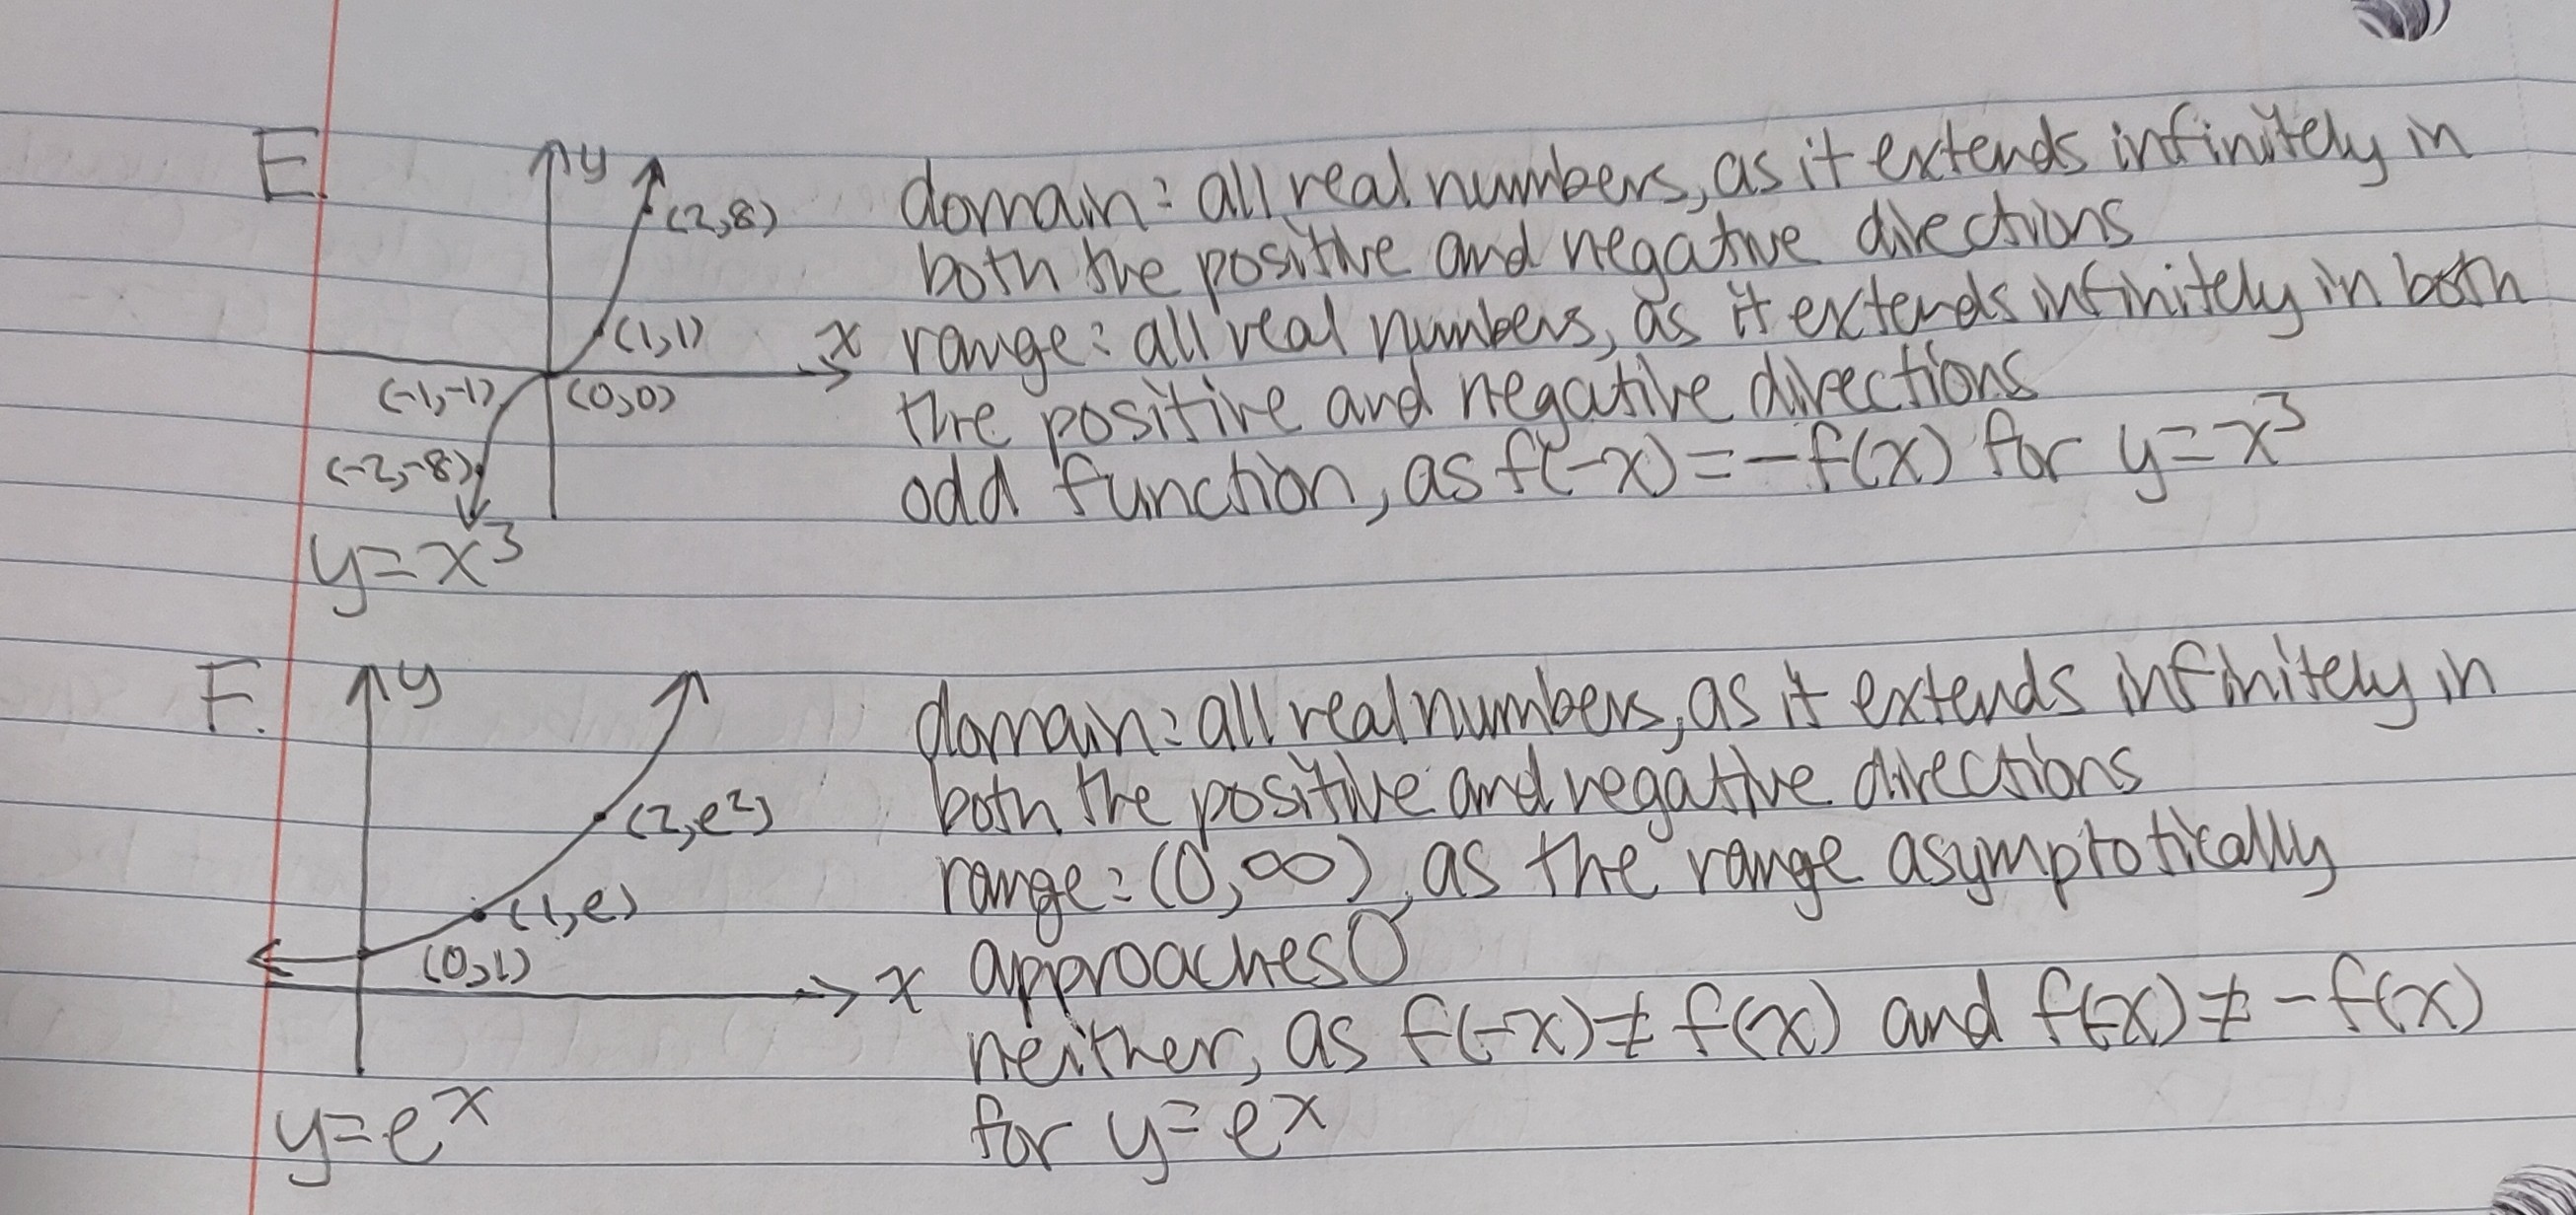 E.
y
(2,8)
(1,1)
x
(-1,-1)
(0,0)
(-2,-8)
y=x³
domain: all real numbers, as it extends infinitely in
both the positive and negative directions
range: all real numbers, as it extends infinitely in both
the positive and negative directions
odd function, as f(-x)=-f(x) for y=x³
F.
y
(2,e²)
(1,e)
(0,1)
x
y=eˣ
domain: all real numbers, as it extends infinitely in
both the positive and negative directions
range: (0,∞), as the range asymptotically
approaches 0
neither, as f(-x)≠f(x) and f(-x)≠-f(x)
for y=eˣ